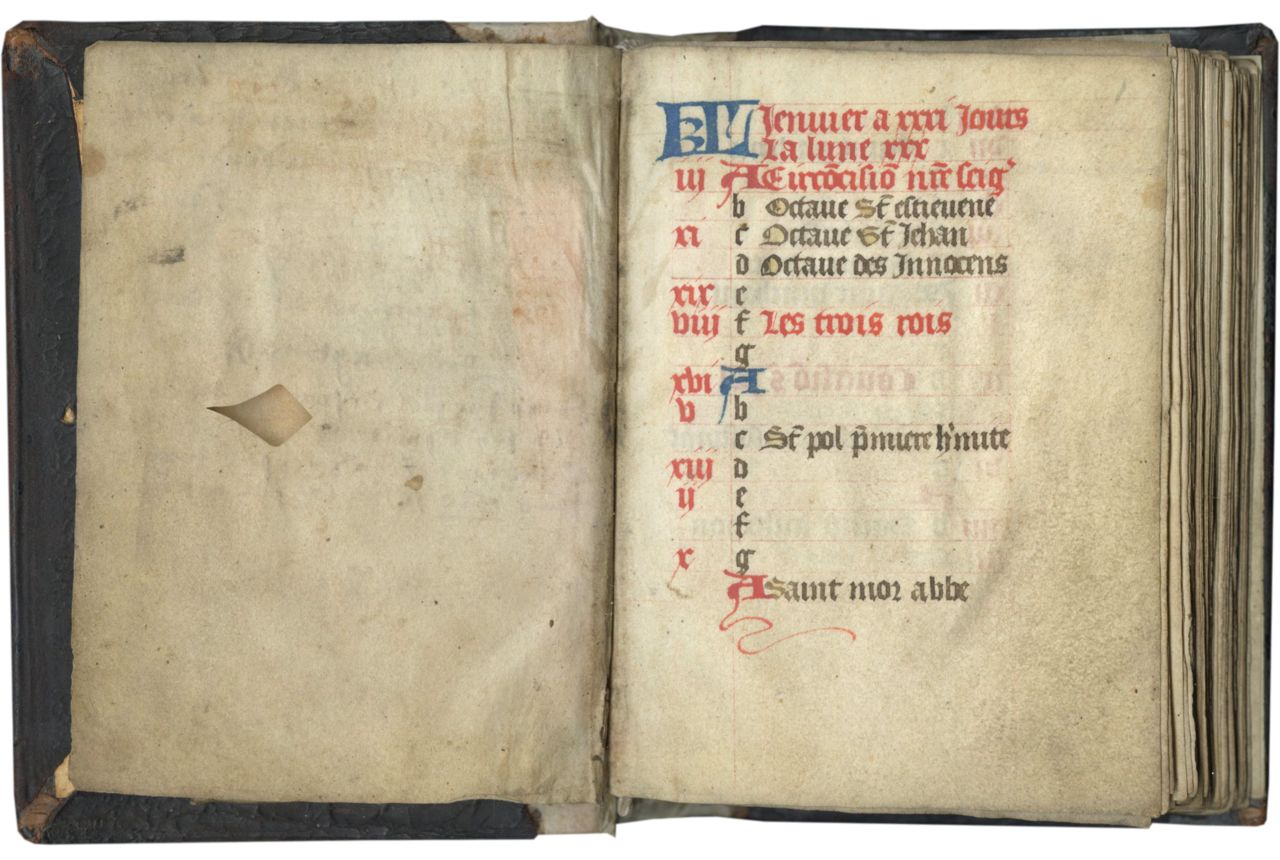 KL Jenuier a xxxi Jours
La lune xxx
iij A Circōcisiō nr̄e seigʼ
b Octaue St̄ estieuene
xi c Octaue St̄ Jehan
d Octaue des Innocens
xix e
viij f Les trois rois
g
xvi A
v b
c St̄ pol p̄miere hʼmite
xiij d
ij e
f
x g
A Saint mor abbe